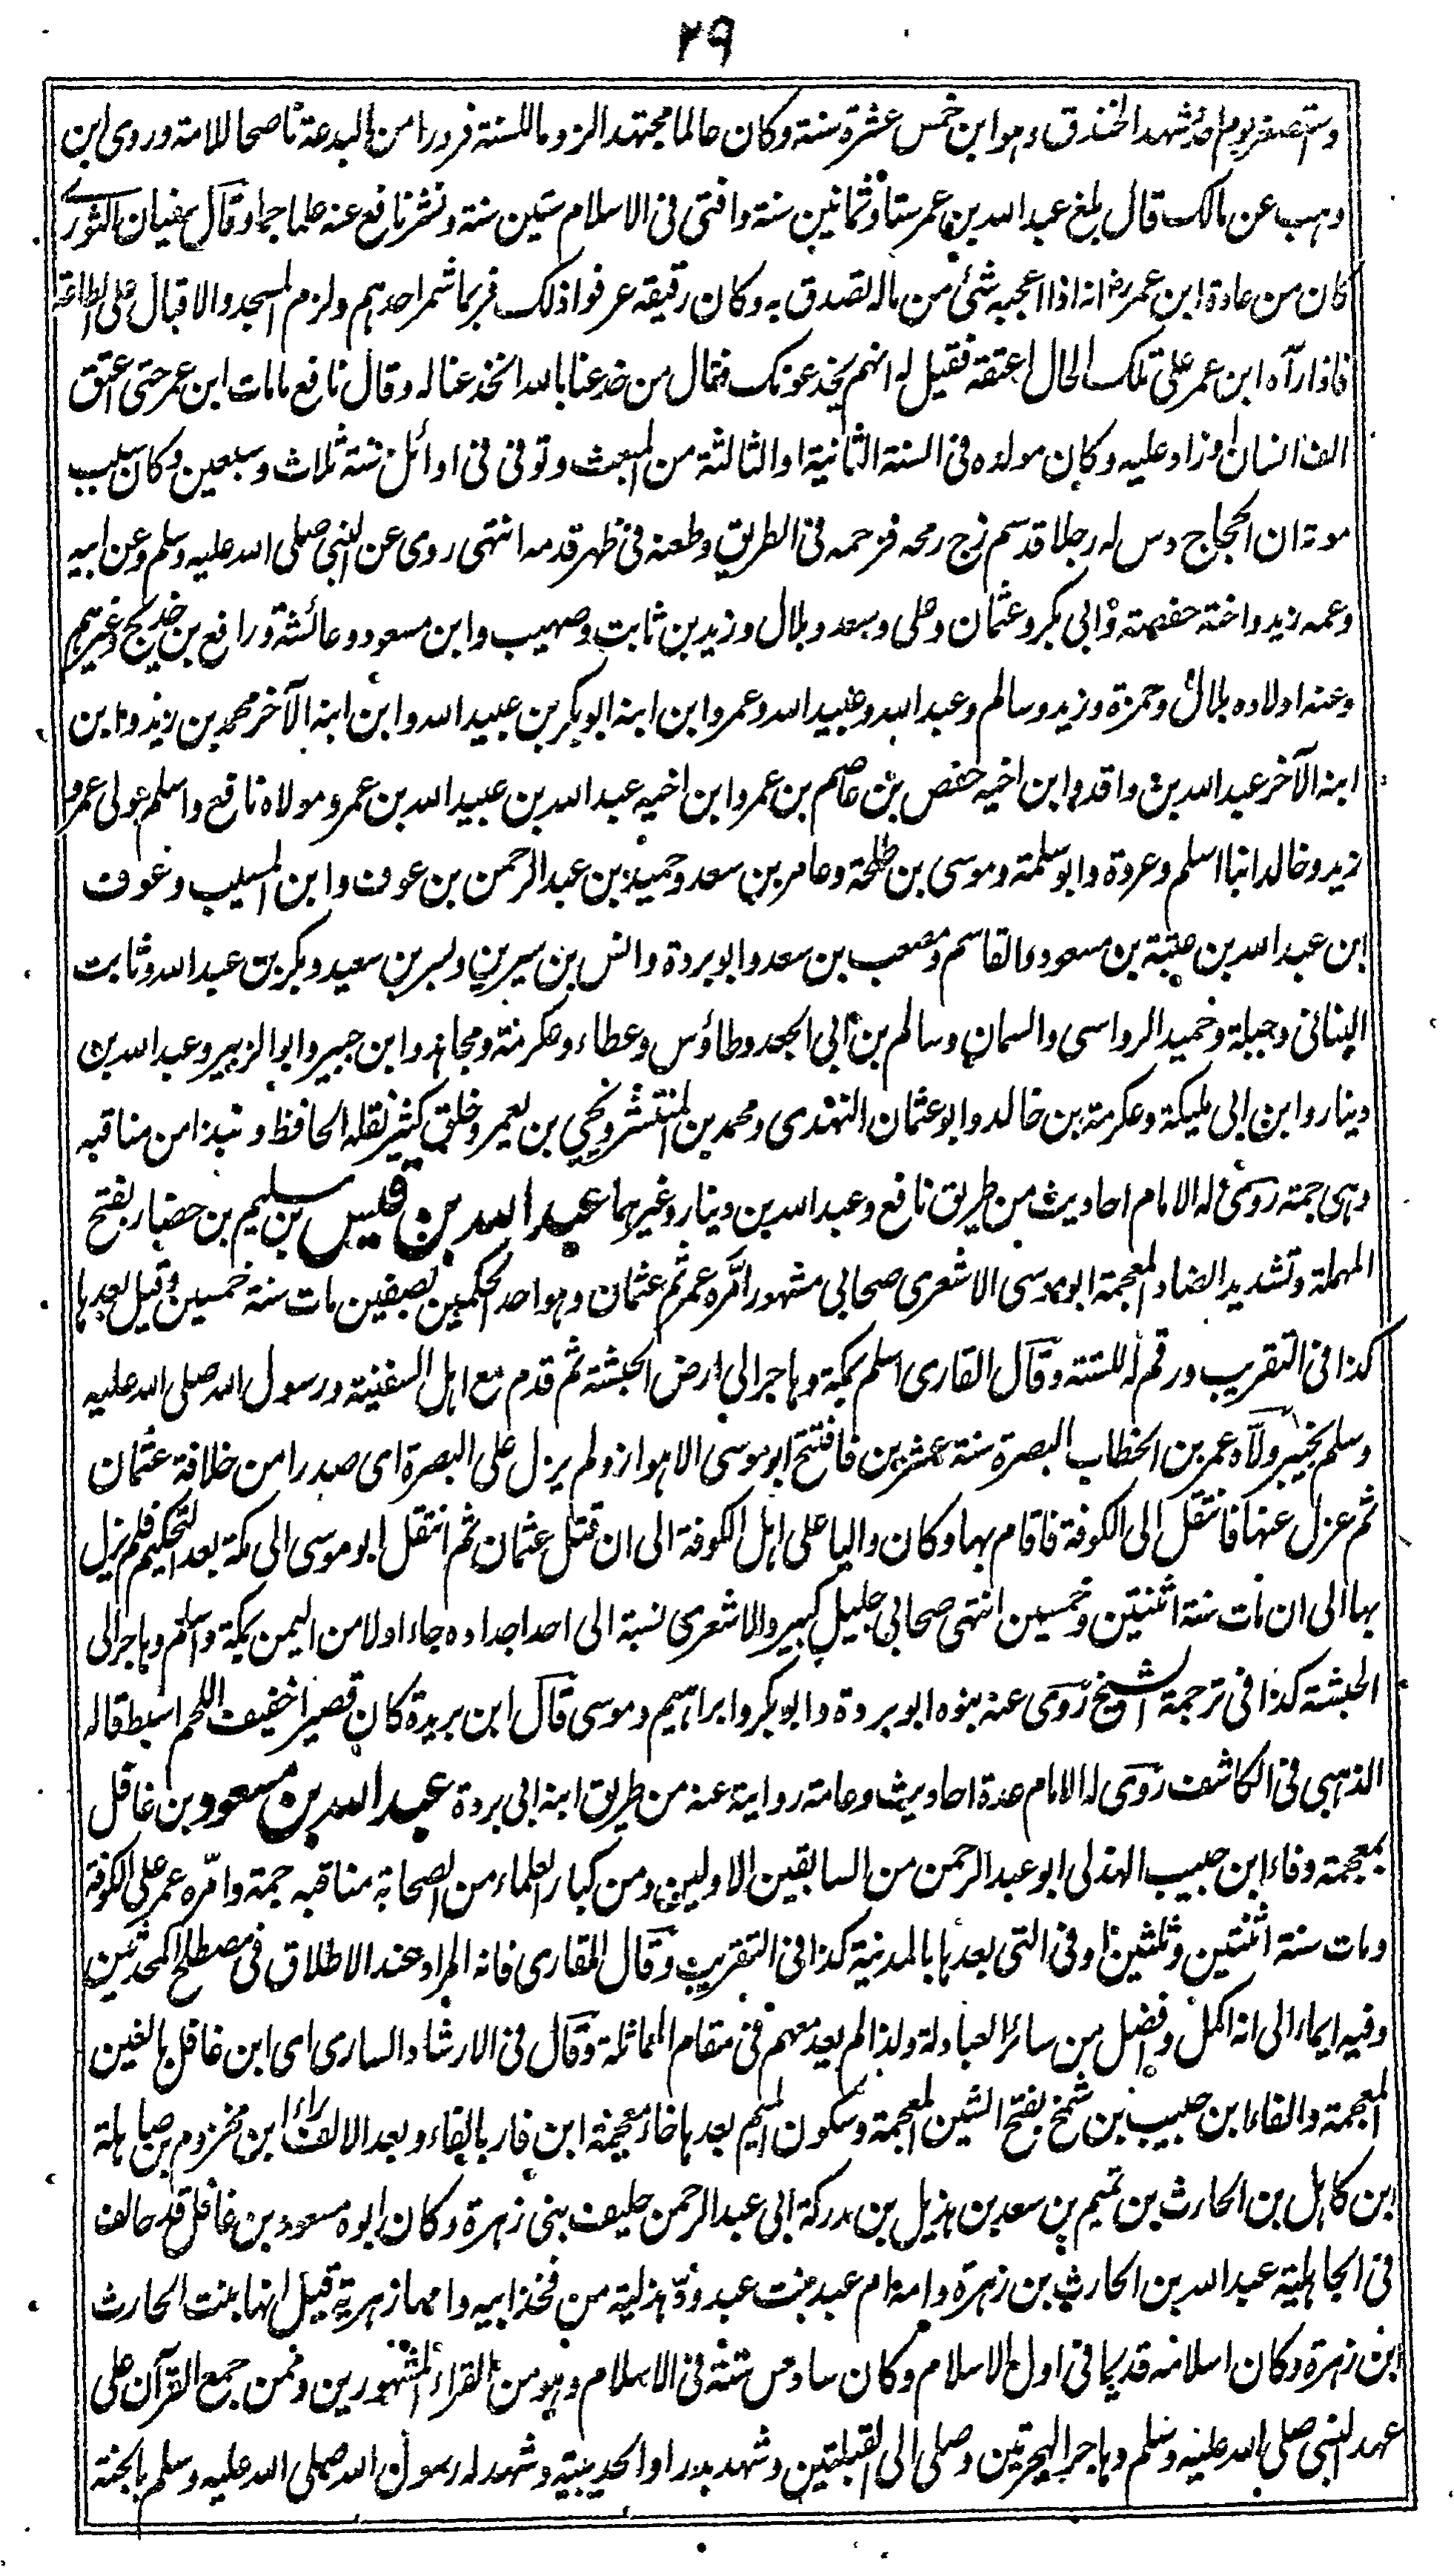 ٢٩
واستصغر يوم احد شهد الخندق وهو ابن خمس عشرة سنة وكان عالما مجتهدا لزوما للسنة فرورا من البدعة ناصحا للامة وروى ابن
وهب عن مالك قال بلغ عبد الله بن عمر ستا وثمانين سنة وافتى فى الاسلام ستين سنة ونشر نافع عنه علما جما وقال سفيان الثورى
كان من عادة ابن عمر رض انه اذا اعجبه شئ من ماله تصدق به وكان رقيقه عرفوا ذلك فربما شمر احدهم ولزم المسجد والاقبال على الطاعة
فاذا رآه ابن عمر على تلك الحال اعتقه فقيل له انهم يخدعونك فقال من خدعنا بالله انخدعنا له وقال نافع ما مات ابن عمر حتى اعتق
الف انسان او زاد عليه وكان مولده فى السنة الثانية او الثالثة من المبعث وتوفى فى اوائل سنة ثلاث وسبعين وكان سبب
موته ان الحجاج دس له رجلا قد سم زج رمحه فزحمه فى الطريق وطعنه فى ظهر قدمه انتهى روى عن النبى صلى الله عليه وسلم وعن ابيه
وعمه زيد واخته حفصة وابى بكر وعثمان وعلى وسعد وبلال وزيد بن ثابت وصهيب وابن مسعود وعائشة ورافع بن خديج وغيرهم
وعنه اولاده بلال وحمزة وزيد وسالم وعبد الله وعبيد الله وعمر وابن ابنه ابو بكر بن عبيد الله وابن ابنه الآخر محمد بن زيد وابن
ابنه الآخر عبد الله بن واقد وابن اخيه حفص بن عاصم بن عمر وابن اخيه عبد الله بن عبيد الله بن عمر ومولاه نافع واسلم مولى عمر و
زيد وخالد ابنا اسلم وعروة وابو سلمة وموسى بن طلحة وعامر بن سعد وحميد بن عبد الرحمن بن عوف وابن المسيب وعوف
ابن عبد الله بن عتبة بن مسعود والقاسم ومصعب بن سعد وابو بردة وانس بن سيرين وبسر بن سعيد وبكر بن عبد الله وثابت
البنانى وجبلة وحميد الرواسى والسمان وسالم بن ابى الجعد وطاؤس وعطاء وعكرمة ومجاهد وابن جبير وابو الزبير وعبد الله بن
دينار وابن ابى مليكة وعكرمة بن خالد وابو عثمان النهدى ومحمد بن المنتشر ويحيى بن يعمر وخلق كثير نقله الحافظ ونبذا من مناقبه
وهى جمة روى له الامام احاديث من طريق نافع وعبد الله بن دينار وغيرهما عبد الله بن قيس بن سليم بن حضار بفتح
المهملة وتشديد الضاد المعجمة ابو موسى الاشعرى صحابى مشهور امّره عمر ثم عثمان وهو احد الحكمين بصفين مات سنة خمسين وقيل بعدها
كذا فى التقريب ورقم له للستة وقال القارى اسلم بمكة وهاجر الى ارض الحبشة ثم قدم مع اهل السفينة ورسول الله صلى الله عليه
وسلم بخيبر ولاه عمر بن الخطاب البصرة سنة عشرين فافتتح ابو موسى الاهواز ولم يزل على البصرة اى صدرا من خلافة عثمان
ثم عزل عنها فانتقل الى الكوفة فاقام بها وكان واليا على اهل الكوفة الى ان قتل عثمان ثم انتقل ابو موسى الى مكة بعد التحكيم فلم يزل
بها الى ان مات سنة اثنتين وخمسين انتهى صحابى جليل كبير والاشعرى نسبة الى احد اجداده جاء اولا من اليمن بمكة واسلم وهاجر الى
الحبشة كذا فى ترجمة الشيخ روى عنه بنوه ابو بردة وابو بكر وابراهيم وموسى قال ابن بريدة كان قصيرا خفيف اللحم اسط قاله
الذهبى فى الكاشف روى له الامام عدة احاديث وعامة رواية عنه من طريق ابنه ابى بردة عبد الله بن مسعود بن غافل
بمعجمة وفاء ابن حبيب الهذلى ابو عبد الرحمن من السابقين الاولين ومن كبار العلماء من الصحابة مناقبه جمة وامّره عمر على الكوفة
ومات سنة اثنتين وثلثين او فى التى بعدها بالمدينة كذا فى التقريب وقال القارى فانه المراد عند الاطلاق فى مصطلح المحدثين
وفيه ايماء الى انه اكمل وافضل من سائر العبادلة ولذا لم يعد معهم فى مقام المماثلة وقال فى الارشاد السارى اى ابن غافل بالغين
المعجمة والفاء ابن حبيب بن شمخ بفتح الشين المعجمة وسكون الميم بعدها خاء معجمة ابن فار بالفاء وبعد الالف راء ابن مخزوم بن صاهلة
ابن كاهل بن الحارث بن تميم بن سعد بن هذيل بن مدركة ابى عبد الرحمن حليف بنى زهرة وكان ابوه مسعود بن غافل قد حالف
فى الجاهلية عبد الله بن الحارث بن زهرة وامه ام عبد بنت عبد ودّ هذلية من فخذ ابيه وامها زهرية قيل انها بنت الحارث
ابن زهرة وكان اسلامه قديما فى اول الاسلام وكان سادس ستة فى الاسلام وهو من القراء المشهورين وممن جمع القرآن على
عهد النبى صلى الله عليه وسلم وهاجر الهجرتين وصلى الى القبلتين وشهد بدرا والحديبية وشهد له رسول الله صلى الله عليه وسلم بالجنة